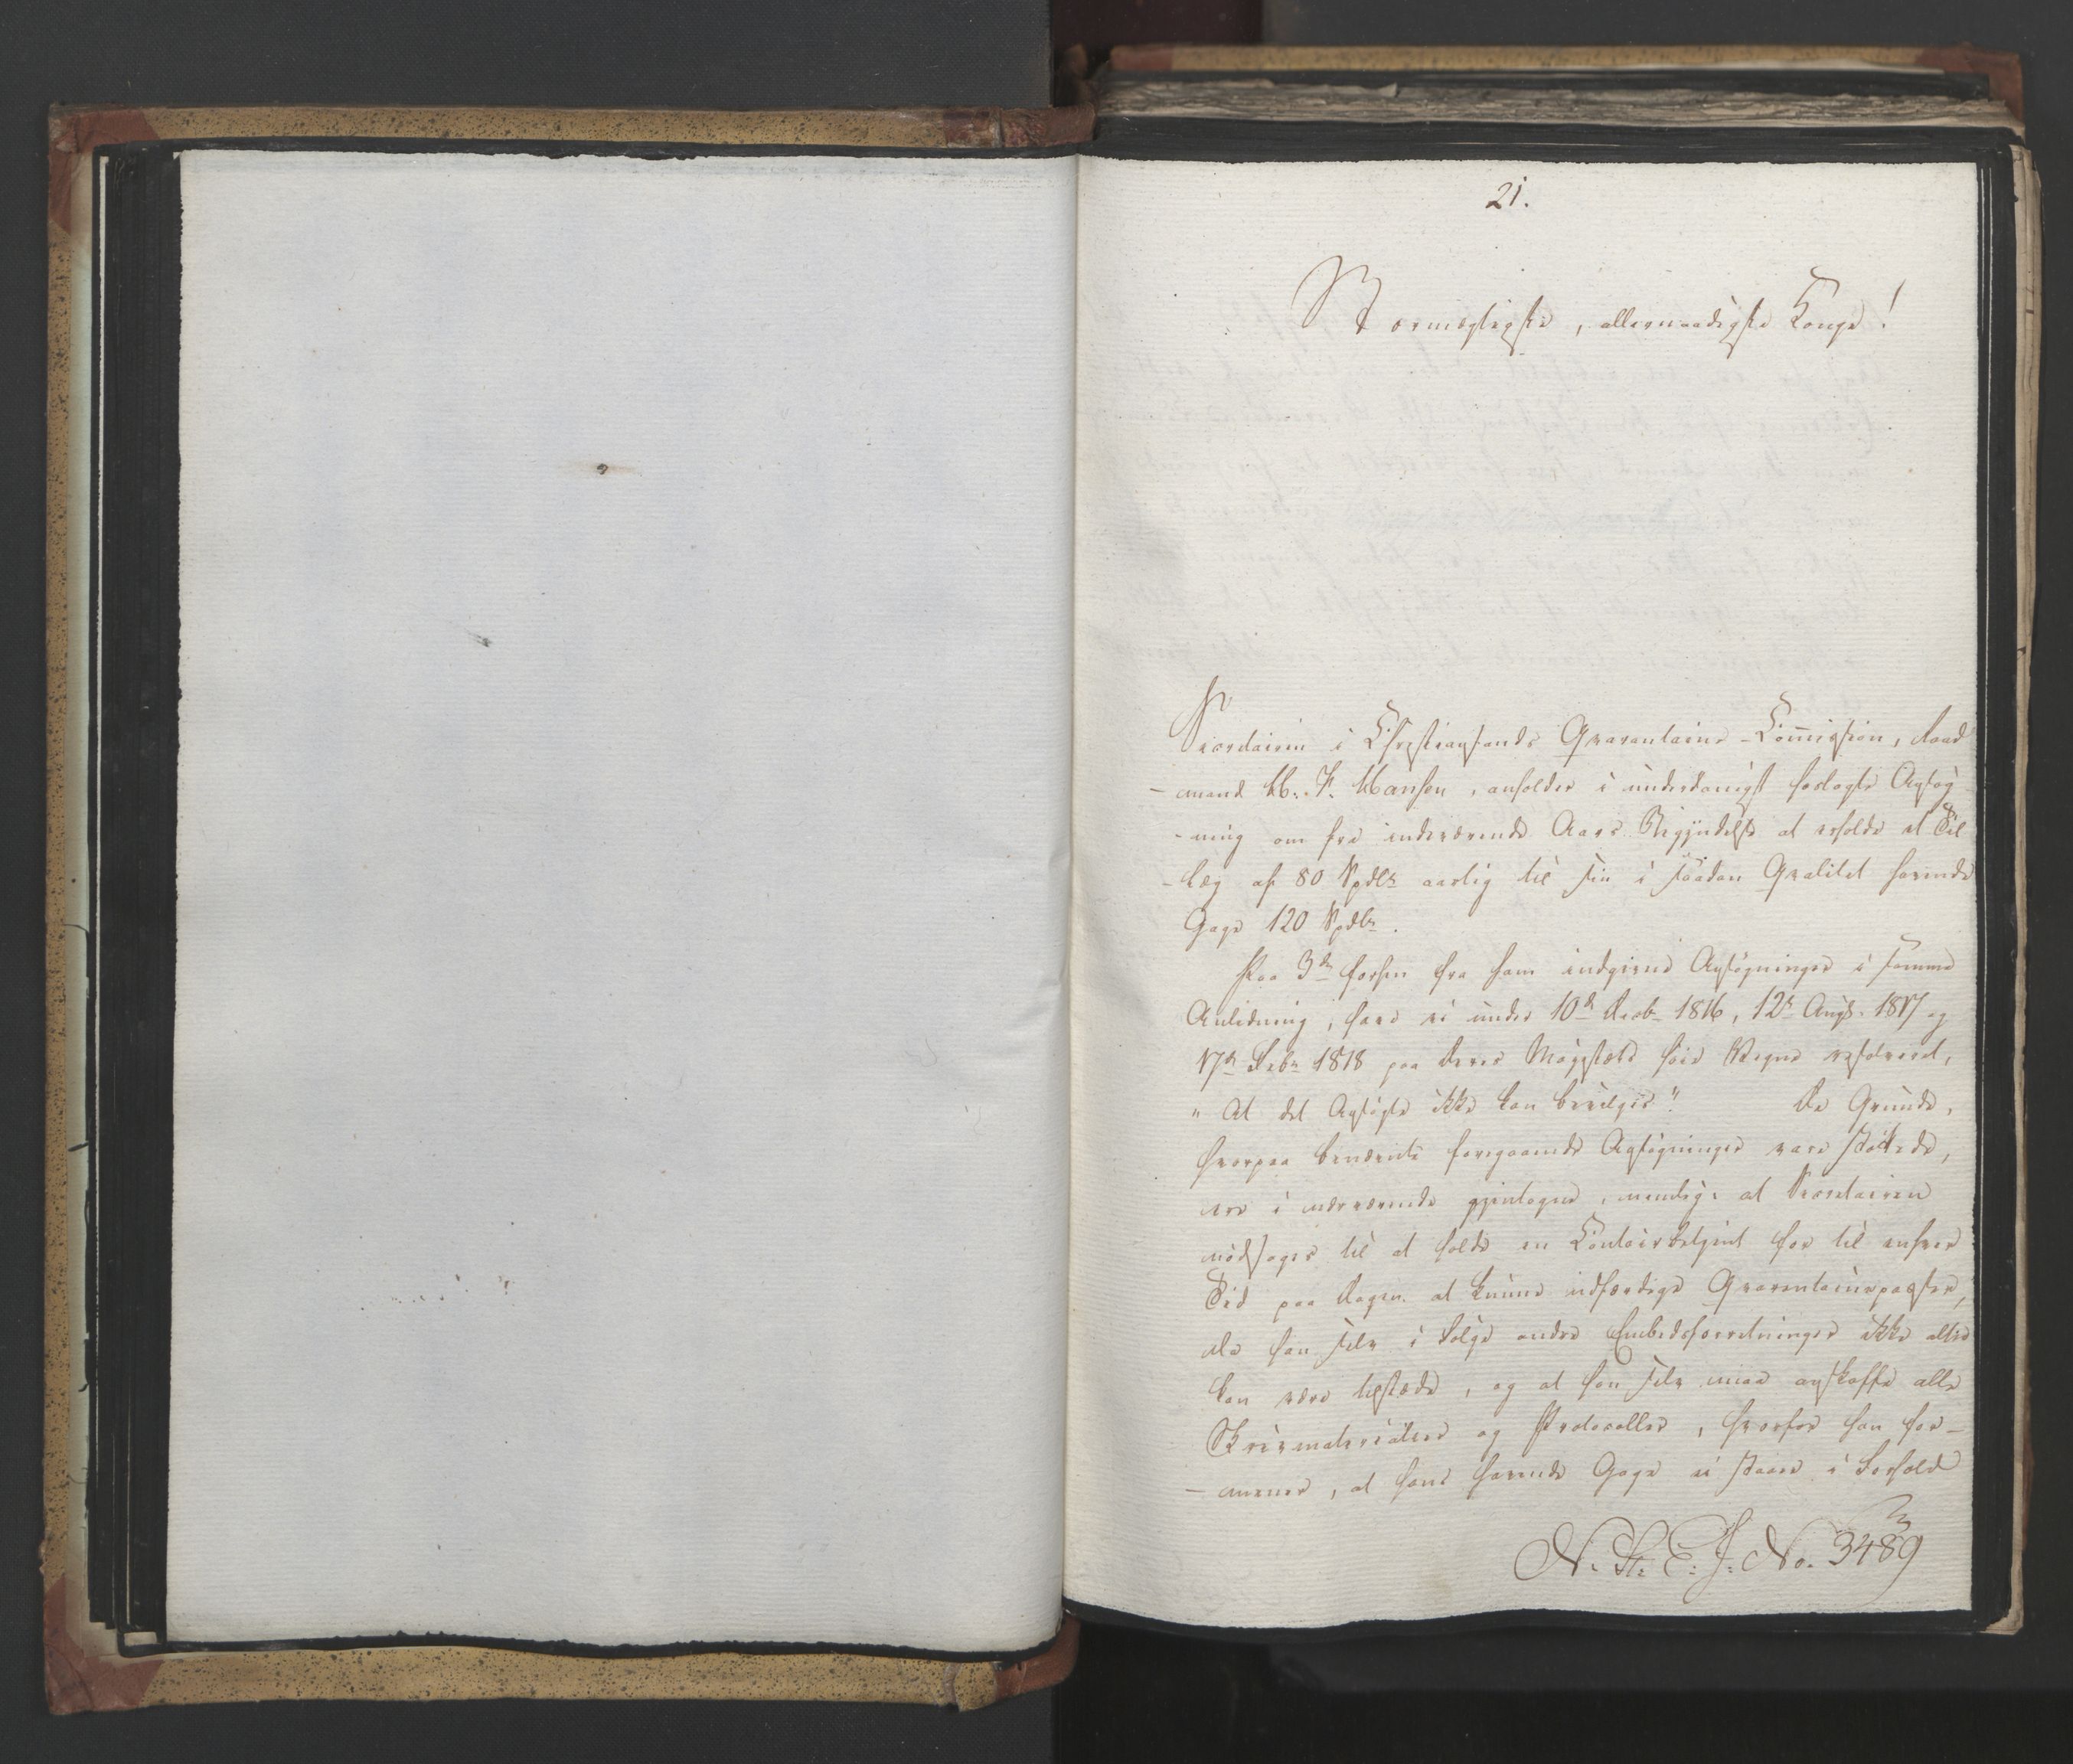 21.
Stormægtigste, allernaadigste Konge!
Secretairen i Christiansands Qvarantaine-Commission, Raad
-mand M. F. Mansen, anholder i underdanigst forlagte Ansøg-
-ning om fra indeværende Aars Begyndelse at erholde et Til
-læg af 80 Spdlr aarlig til sin i saadan Qvalitet havende
Gage 120 Spdlr.
Paa 3de forhen fra ham indgivne Ansøgninger i samme
Anledning, have vi under 10de Decbr 1816, 12te Augs. 1817 og
17de Febr 1818 paa Deres Majestæts høie Vegne resolveret,
"At det Ansøgte ikke kan bevilges". De Grunde,
hvorpaa benævnte foregaaende Ansøgninger vare støttede,
ere i nærværende gjentagne, nemlig: at Secretairen
nødsages til at holde en Contoirbetjent for til enhver
Tid paa Dagen at kunne udfærdige Qvarantainepasser,
da han selv i Følge andre Embedsforretninger ikke altid
kan være tilstæde, og at han selv maa anskaffe alle
Skrivmaterialier og Protocoller, hvorfor han for-
-mener, at hans havende Gage ei staaer i Forhold
N. St. E. J. No. 3489